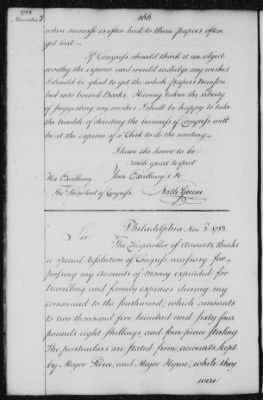 1783
November 3
166
where recourse is often had to them papers often
get lost.
If Congress should think it an object
worthy the expence and would indulge my wishes
I should be glad to get the whole papers transfer-
ed into bound Books. Having taken the liberty
of suggesting my wishes I shall be happy to take
the trouble of directing the business if Congress will
be at the expence of a Clerk to do the writing.
I have the honor to be
with great respect
His Excellency Your Excellency's &c
The President of Congress. Nath Greene
Philadelphia Nov. 3 1783.
Sir
The Comptroller of Accounts, thinks
a special resolution of Congress necessary for
passing my accounts of money expended for
travelling and family expences during my
command to the southward, which amounts
to two thousand five hundred and sixty four
pounds eight shillings and four pence sterling
The particulars are stated from accounts kept
by Major Pierce, and Major Hyrne, while they
were